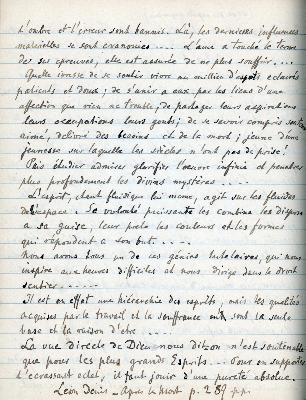 L'ombre et l'erreur sont bannis. Là, les dernières influences
matérielles se sont évanouies .... L'âme a touché le terme
de ses épreuves, elle est assurée de ne plus souffrir ....
Quelle ivresse de se sentir vivre au milieu d'esprits éclairés
patients et doux ; de s'unir à eux par les liens d'une
affection que rien ne trouble, de partager leurs aspirations
leurs occupations leurs goûts ; de se savoir compris soutenu
aimé, délivré des besoins et de la mort ; jeune d'une
jeunesse sur laquelle les siècles n'ont pas de prise !
Puis étudier admirer glorifier l'oeuvre infinie et pénétrer
plus profondément les divins mystères ....
L'esprit, étant fluidique lui même, agit sur les fluides
de l'espace. Sa volonté puissante les combine les dispose
à sa guise, leur prête les couleurs et les formes
qui répondent à son but ....
Nous avons tous un de ces génies tutélaires, qui nous
inspire aux heures difficiles et nous dirige dans le droit
sentier ......
Il est en effet une hiérarchie des esprits, mais les qualités
acquises par le travail et la souffrance en sont la seule
base et la raison d'être ....
La vue directe de Dieu nous dit-on n'est soutenable
que pour les plus grands Esprits .... Pour en supporter
l'écrasant éclat, il faut jouir d'une pureté absolue.
Léon Denis - Après la mort p. 287